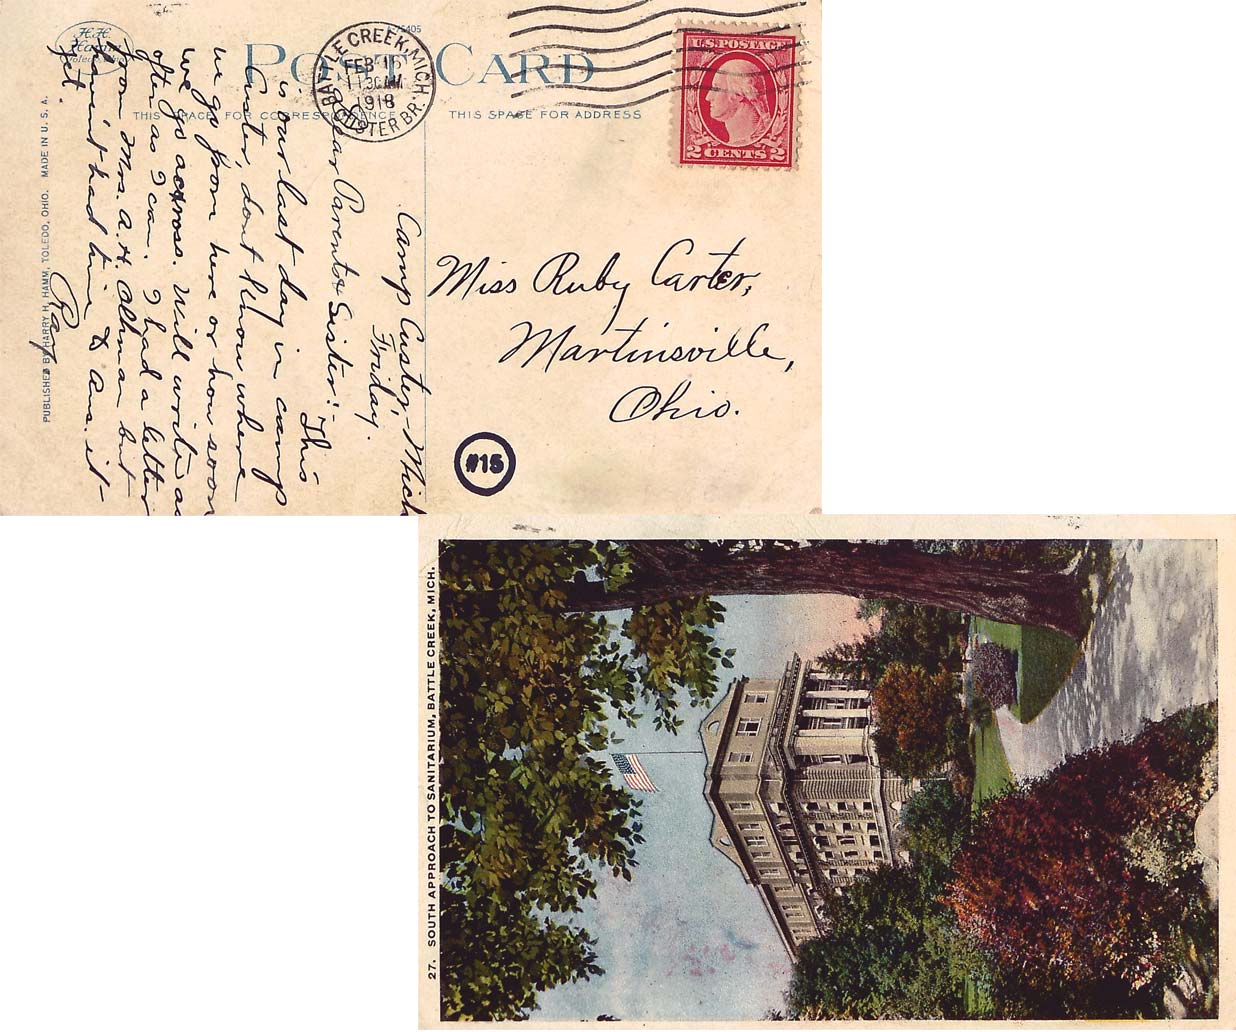 H.H.
Hamm
Toledo, Ohio
POST CARD
THIS SPACE FOR CORRESPONDENCE
THIS SPACE FOR ADDRESS
BATTLE CREEK, MICH.
FEB 15
1130 AM
1918
CUSTER BR.
U.S. POSTAGE
2 CENTS 2
PUBLISHED BY HARRY H. HAMM, TOLEDO, OHIO. MADE IN U. S. A.
Camp Custer, Mich
Friday.
Dear Parents & Sister:- This
is our last day in camp
Custer, dont know where
we go from here or how soon
we go across. Will write as
often as I can. I had a letter
from Mrs. A. H. but
havent had time to ans. it
yet.
Ray
Miss Ruby Carter,
Martinsville,
Ohio.
#15
27. SOUTH APPROACH TO SANITARIUM, BATTLE CREEK, MICH.